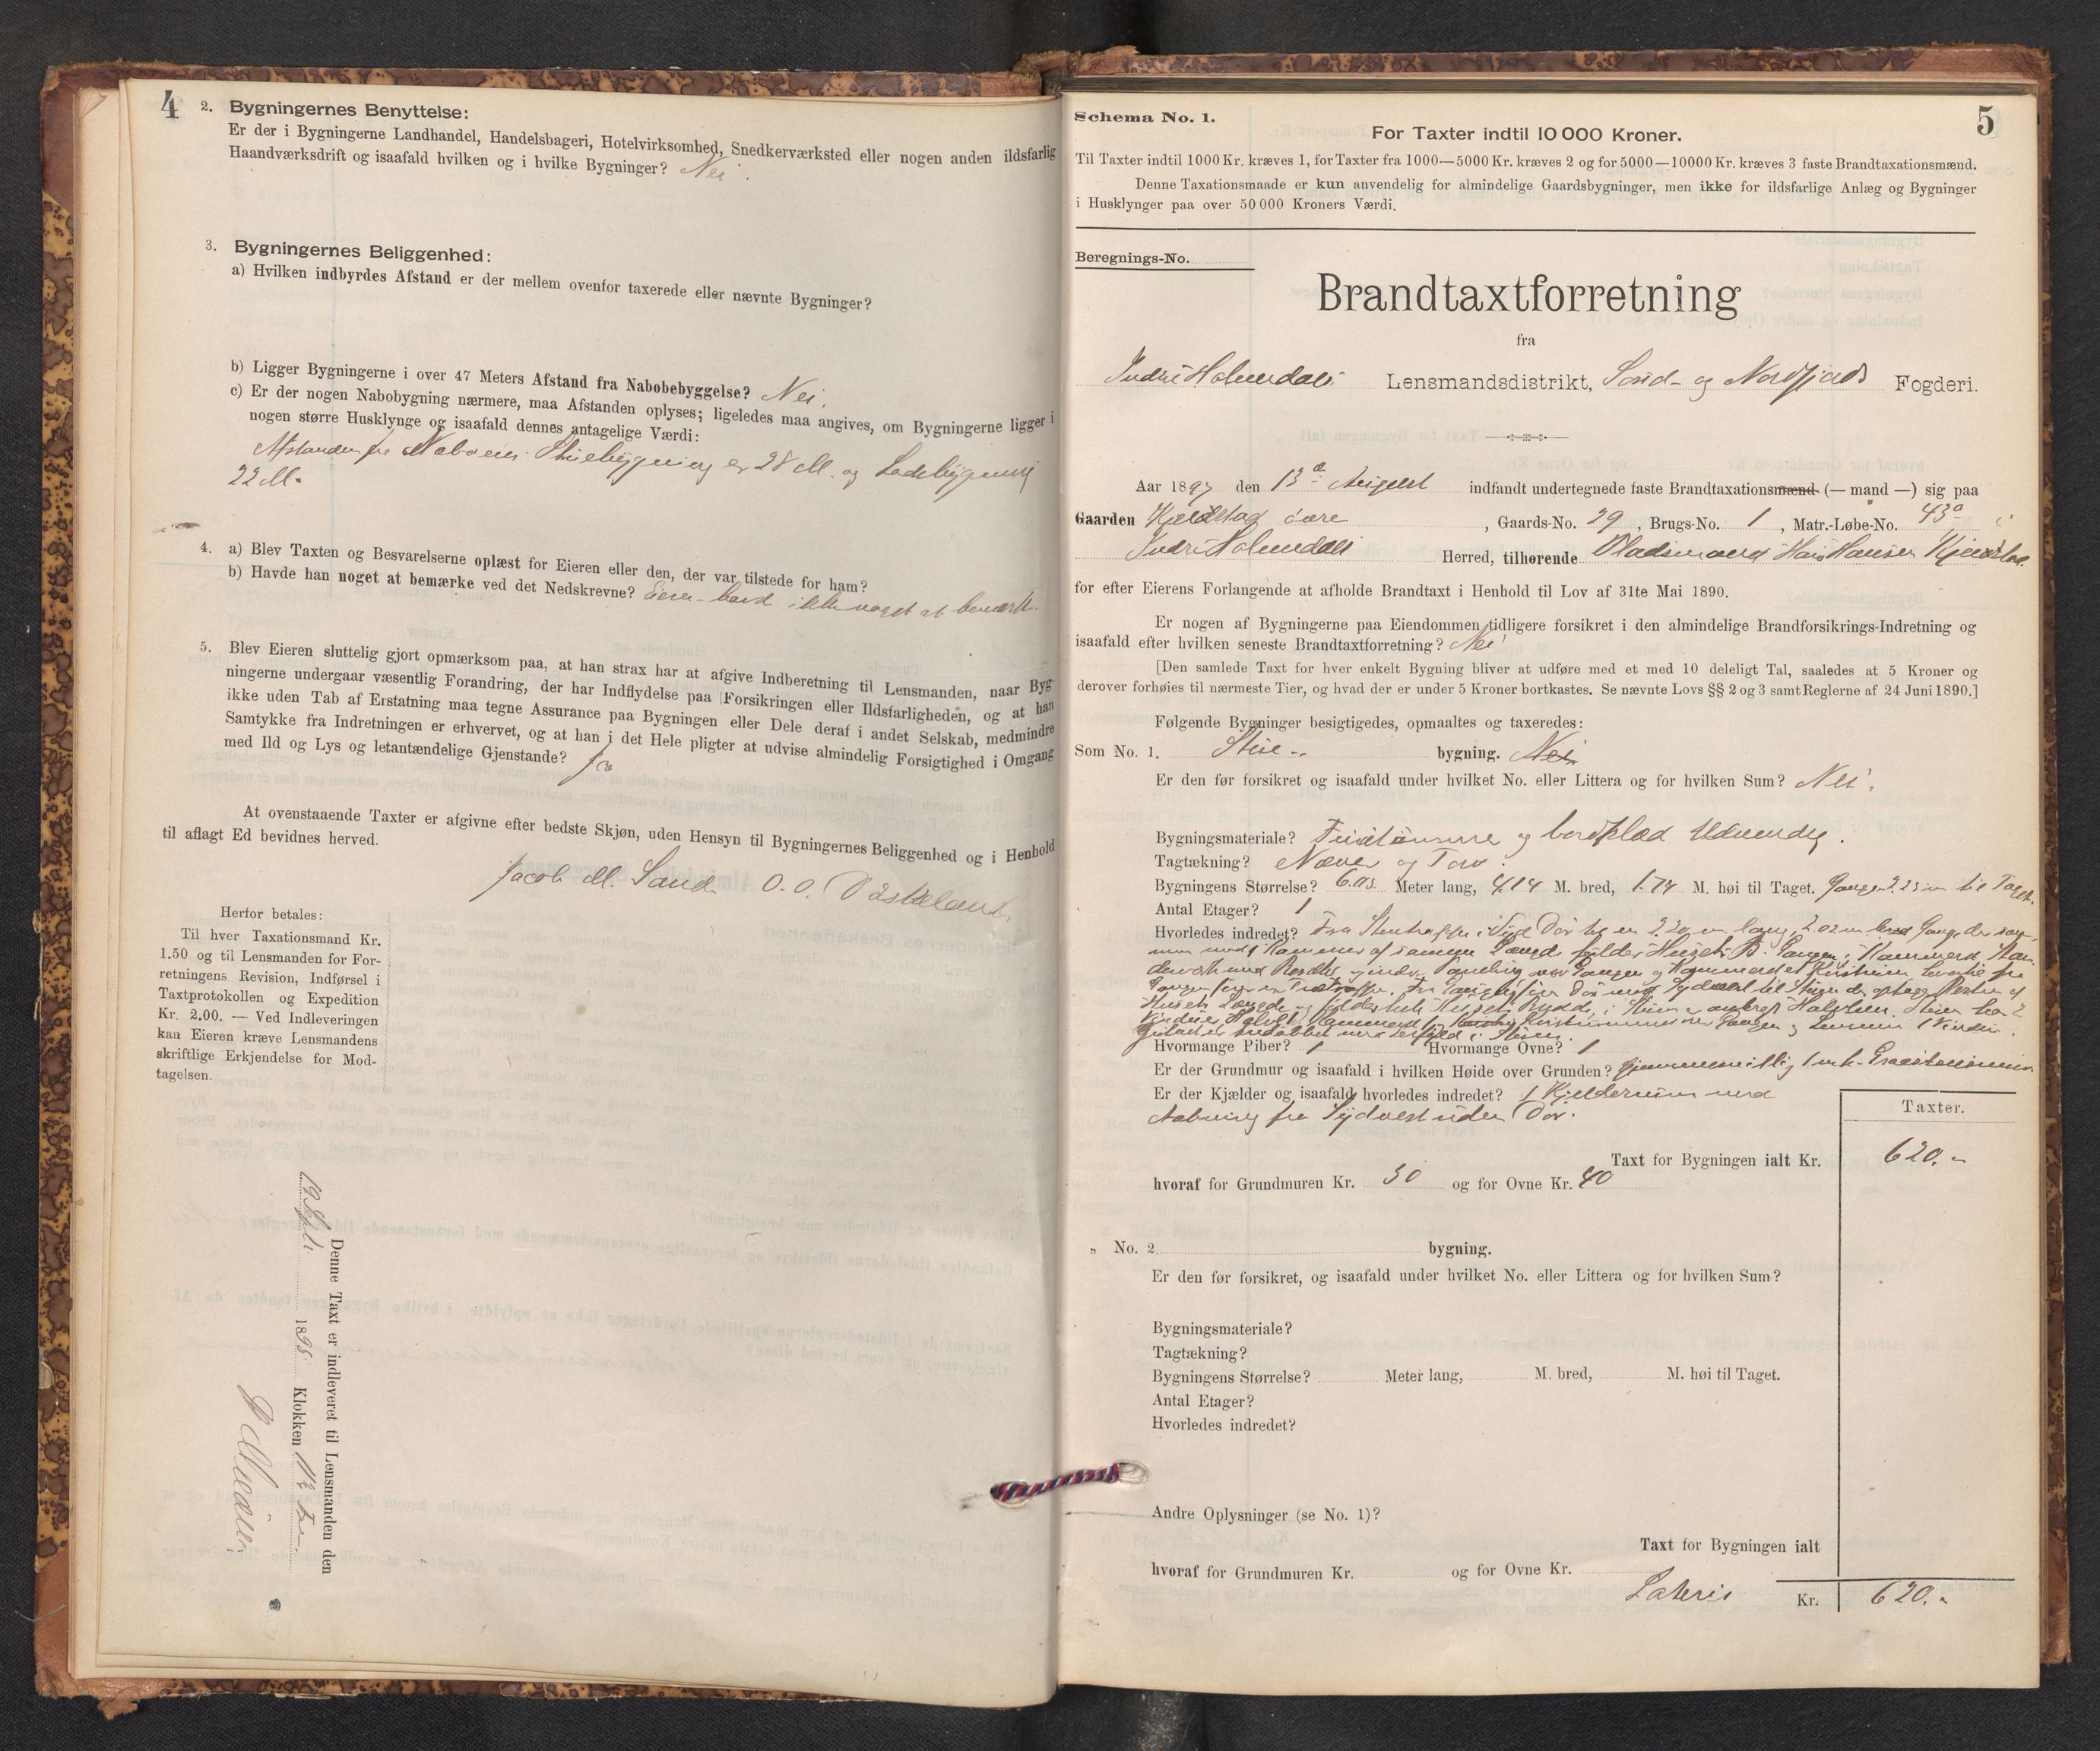 4
2. Bygningernes Benyttelse:
Er der i Bygningerne Landhandel, Handelsbageri, Hotelvirksomhed, Snedkerværksted eller nogen anden ildsfarlig
Haandværksdrift og isaafald hvilken og i hvilke Bygninger? Nei.
3. Bygningernes Beliggenhed:
a) Hvilken indbyrdes Afstand er der mellem ovenfor taxerede eller nævnte Bygninger?
b) Ligger Bygningerne i over 47 Meters Afstand fra Nabobebyggelse? Nei.
c) Er der nogen Nabobygning nærmere, maa Afstanden oplyses; ligeledes maa angives, om Bygningerne ligger i
nogen større Husklynge og isaafald dennes antagelige Værdi:
Afstanden fra Naboens Stuebygning er 28 M. og Ladebygning
22 M.
4. a) Blev Taxten og Besvarelserne oplæst for Eieren eller den, der var tilstede for ham?
b) Havde han noget at bemærke ved det Nedskrevne? Eieren havd ikke noget at bemærk.
5. Blev Eieren sluttelig gjort opmærksom paa, at han strax har at afgive Indberetning til Lensmanden, naar Byg-
ningerne undergaar væsentlig Forandring, der har Indflydelse paa Forsikringen eller Ildsfarligheden, og at han
ikke uden Tab af Erstatning maa tegne Assurance paa Bygningen eller Dele deraf i andet Selskab, medmindre
Samtykke fra Indretningen er erhvervet, og at han i det Hele pligter at udvise almindelig Forsigtighed i Omgang
med Ild og Lys og letantændelige Gjenstande? Ja
At ovenstaaende Taxter er afgivne efter bedste Skjøn, uden Hensyn til Bygningernes Beliggenhed og i Henhold
til aflagt Ed bevidnes herved.
Jacob M. Sand O. O.
Herfor betales:
Til hver Taxationsmand Kr.
1.50 og til Lensmanden for For-
retningens Revision, Indførsel i
Taxtprotokollen og Expedition
Kr. 2.00. — Ved Indleveringen
kan Eieren kræve Lensmandens
skriftlige Erkjendelse for Mod-
tagelsen.
Denne Taxt er indleveret til Lensmanden den
19 Sept. 1898 Klokken 11½
5
Schema No. 1.
For Taxter indtil 10 000 Kroner.
Til Taxter indtil 1000 Kr. kræves 1, for Taxter fra 1000—5000 Kr. kræves 2 og for 5000—10000 Kr. kræves 3 faste Brandtaxationsmænd.
Denne Taxationsmaade er kun anvendelig for almindelige Gaardsbygninger, men ikke for ildsfarlige Anlæg og Bygninger
i Husklynger paa over 50 000 Kroners Værdi.
Beregnings-No.
Brandtaxtforretning
fra
Indre Holmedals Lensmandsdistrikt, Sønd- og Nordfjords Fogderi.
Aar 1897 den 13de August indfandt undertegnede faste Brandtaxationsmænd (— mand —) sig paa
Gaarden Kjelstad øvre, Gaards-No. 29, Brugs-No. 1, Matr.-Løbe-No. 43a i
Indre Holmedals Herred, tilhørende Pladsmand Hans Hansen Kjelstad
for efter Eierens Forlangende at afholde Brandtaxt i Henhold til Lov af 31te Mai 1890.
Er nogen af Bygningerne paa Eiendommen tidligere forsikret i den almindelige Brandforsikrings-Indretning og
isaafald efter hvilken seneste Brandtaxtforretning? Nei
[Den samlede Taxt for hver enkelt Bygning bliver at udføre med et med 10 deleligt Tal, saaledes at 5 Kroner og
derover forhøies til nærmeste Tier, og hvad der er under 5 Kroner bortkastes. Se nævnte Lovs §§ 2 og 3 samt Reglerne af 24 Juni 1890.]
Følgende Bygninger besigtigedes, opmaaltes og taxeredes:
Som No. 1. Stue- bygning. Nei
Er den før forsikret og isaafald under hvilket No. eller Littera og for hvilken Sum? Nei.
Bygningsmateriale? og bordklæd Udvendig.
Tagtækning? Næver og Torv.
Bygningens Størrelse? 6.03 Meter lang, 4.14 M. bred, 1.74 M. høi til Taget. Gangen 2.25 m til Taget.
Antal Etager? 1
Hvorledes indredet? Fra i Syd Dør til en 2.20 m lang, 2.02 m bred Gang, der
med Kammer af samme Længde
Hvormange Piber? 1 Hvormange Ovne? 1
Er der Grundmur og isaafald i hvilken Høide over Grunden? Gjennemsnitlig 1 m h. Graastensmur
Er der Kjælder og isaafald hvorledes indredet? 1 Kjelderrum med
Aabning fra Sydvest uden Dør.
Taxter.
Taxt for Bygningen ialt Kr. 620.-
hvoraf for Grundmuren Kr. 30 og for Ovne Kr. 40
„ No. 2 bygning.
Er den før forsikret, og isaafald under hvilket No. eller Littera og for hvilken Sum?
Bygningsmateriale?
Tagtækning?
Bygningens Størrelse? Meter lang, M. bred, M. høi til Taget.
Antal Etager?
Hvorledes indredet?
Andre Oplysninger (se No. 1)?
Taxt for Bygningen ialt
hvoraf for Grundmuren Kr. og for Ovne Kr.
Lateris Kr. 620.-